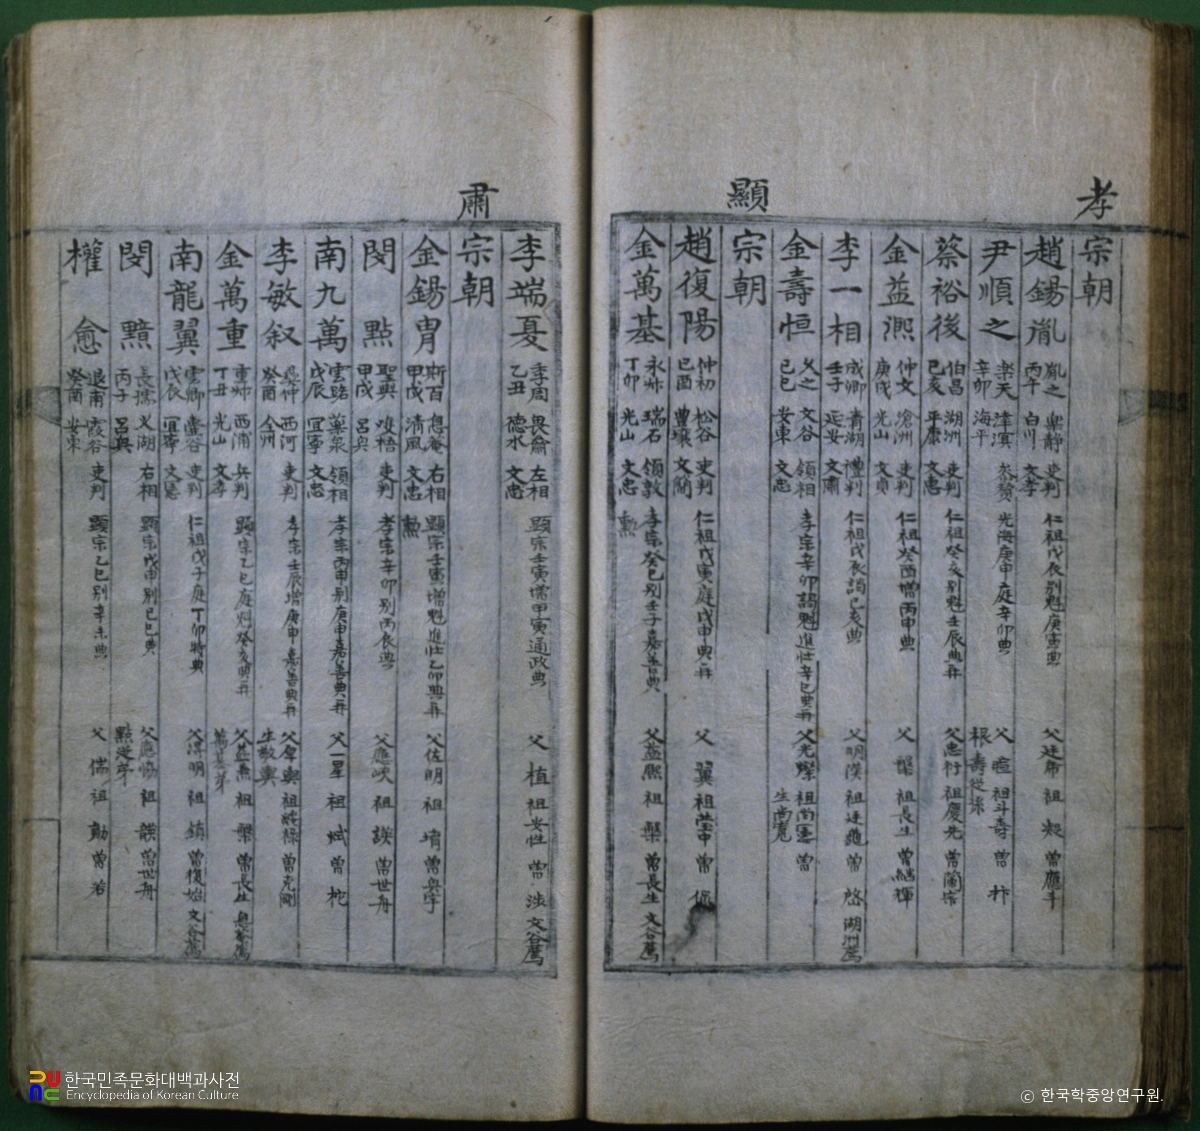 孝宗朝
趙錫胤 胤之 丙午 樂靜 白川 吏判 文孝 仁祖戊辰別魁庚寅典 父廷虎 祖 曾應斗
尹順之 樂天 辛卯 涬溟 海平 參贊 光海庚申庭辛卯典 父 暄 祖斗壽 曾 忭 根壽從孫
蔡裕後 伯昌 己亥 湖洲 平康 吏判 文惠 仁祖癸亥別魁壬辰典再 父忠衍 祖慶先 曾蘭宗
金益熙 仲文 庚戌 滄洲 光山 吏判 文貞 仁祖癸酉增丙申典 父 槃 祖長生 曾繼輝
李一相 咸卿 壬子 青湖 延安 禮判 文肅 仁祖戊辰謁己亥典 父明漢 祖廷龜 曾 啓 湖洲薦
金壽恒 久之 己巳 文谷 安東 領相 文忠 孝宗辛卯謁魁進壯辛巳典再 父光燦 祖尚憲 曾 生尚寬
顯宗朝
趙復陽 仲初 己酉 松谷 豊壤 吏判 文簡 仁祖戊寅庭戊申典再 父 翼 祖瑩中 曾 保
金萬基 永叔 丁卯 瑞石 光山 領敦 文忠 勲 孝宗癸巳別壬子嘉善典 父益熙 祖 槃 曾長生 文谷薦
李端夏 季周 乙丑 畏齋 德水 左相 文忠 顯宗壬寅增甲寅通政典 父 植 祖安性 曾 涉 文谷薦
肅宗朝
金錫胄 斯百 甲戌 息庵 清風 右相 文忠 勲 顯宗壬寅增魁進壯乙卯典再 父佐明 祖 堉 曾興宇
閔 點 聖與 甲戌 唆梧 呂興 吏判 孝宗辛卯別丙辰典 父應協 祖 曾世舟
南九萬 雲路 戊辰 藥泉 宜寧 領相 文忠 孝宗丙申別庚申嘉善典再 父一星 祖 烒 曾 柁
李敏叙 彛仲 癸酉 西河 全州 吏判 孝宗壬辰增庚申嘉善典再 父厚輿 祖綏祿 曾克剛 生敬輿
金萬重 重叔 丁丑 西浦 光山 兵判 文孝 顯宗乙巳庭魁癸亥典再 父益兼 祖 槃 曾長生 息庵薦 萬基弟
南龍翼 雲卿 戊辰 壺谷 宜寧 吏判 文憲 仁祖戊子庭丁卯特典 父得明 祖 鎮 曾復始 文谷薦
閔 黯 長孺 丙子 叉湖 呂興 右相 顯宗戊申別己巳典 父應協 祖 曾世舟 點從弟
權 愈 退甫 癸酉 霞谷 安東 吏判 顯宗乙巳別辛未典 父 儒 祖 勛 曾 若
한국민족문화대백과사전
Encyclopedia of Korean Culture
ⓒ 한국학중앙연구원.